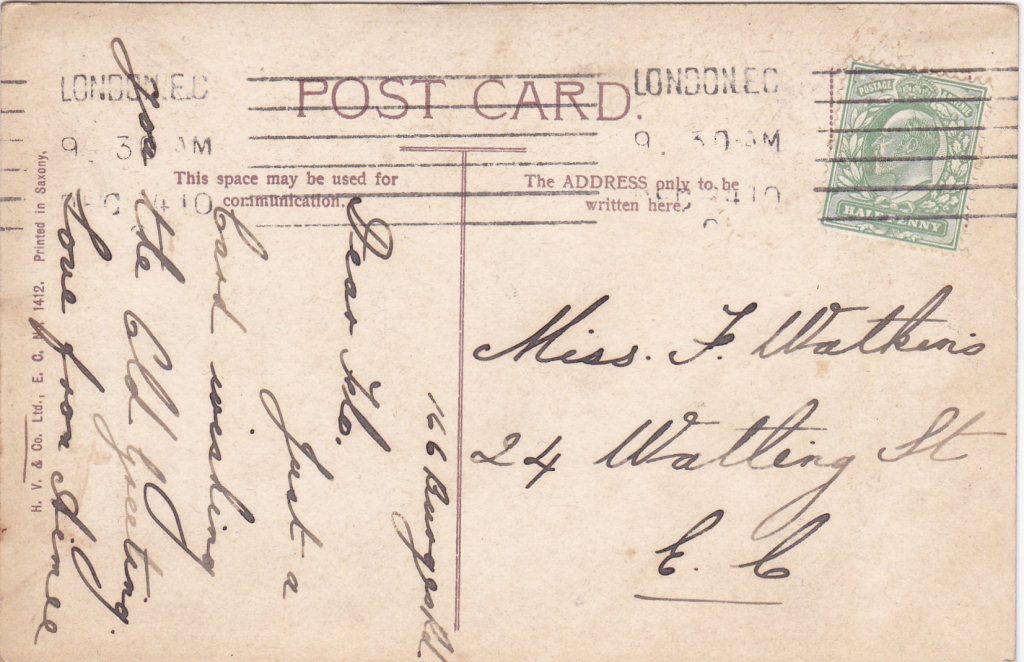 POST CARD.
LONDON.E.C
9. 30 AM
DEC 4 10
LONDON.E.C
9. 30 AM
4 10
POSTAGE
HALFPENNY
This space may be used for
communication.
The ADDRESS only to be
written here.
166 Burges Rd.
Dear Flo.
Just a
Card wishing
you the Old Greeting.
Love from Aimee
Miss. F. Watkins
24 Watling St
E. C
H. V. & Co. Ltd., E. C. No. 1412. Printed in Saxony.